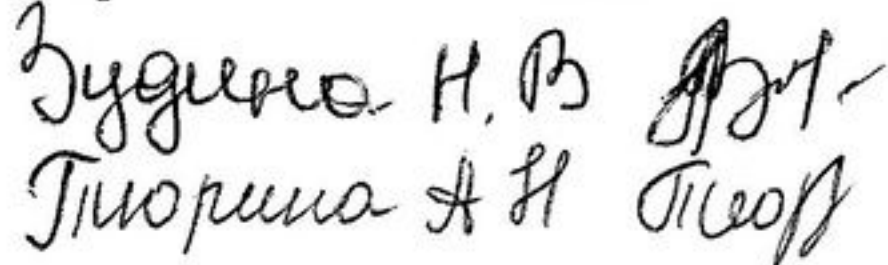 Зудина Н. В
Тюрина А Н Тюр